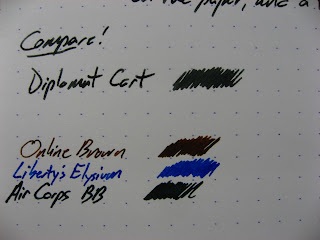 on the paper, and a
Compare!
Diplomat Cart
Online Brown
Liberty's Elysium
Air Corps BB